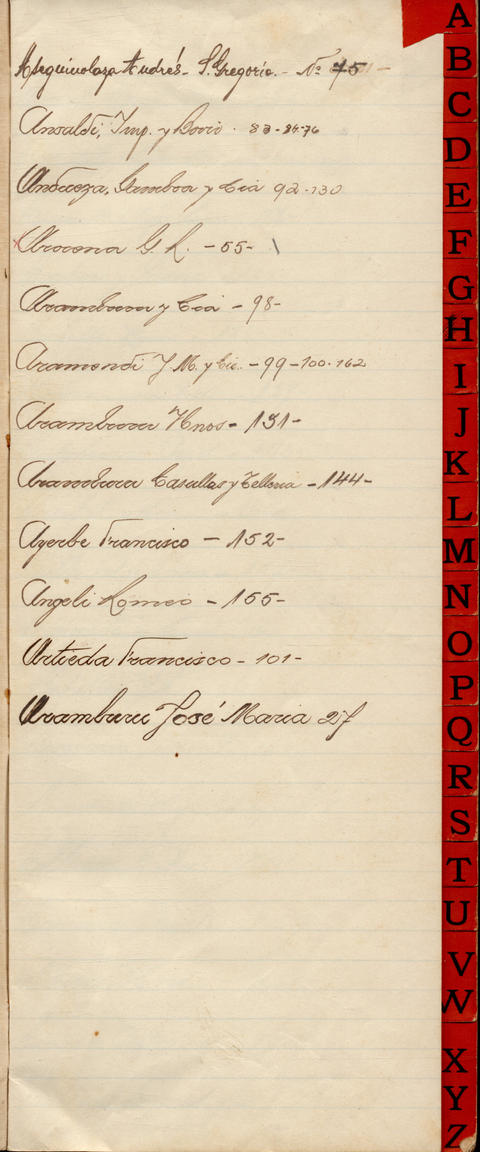 Aseguinolaza Andrés - S. Gregorio. - No 
Ansaldi, Imp. y Bovio. 83-84-76
Andueza, Gamboa y Cia 92-130
Arocena G. R. - 55-
Aramburu y Cia - 98-
Aramendi J. M. y Cia. - 99-100-162
Aramburu Hnos - 131-
Aramburu Casallas y Telleria - 144-
Ayerbe Francisco - 152-
Angeli Romeo - 155-
Artieda Francisco - 101-
Aramburu José Maria 27
A
B
C
D
E
F
G
H
I
J
K
L
M
N
O
P
Q
R
S
T
U
V
W
X
Y
Z